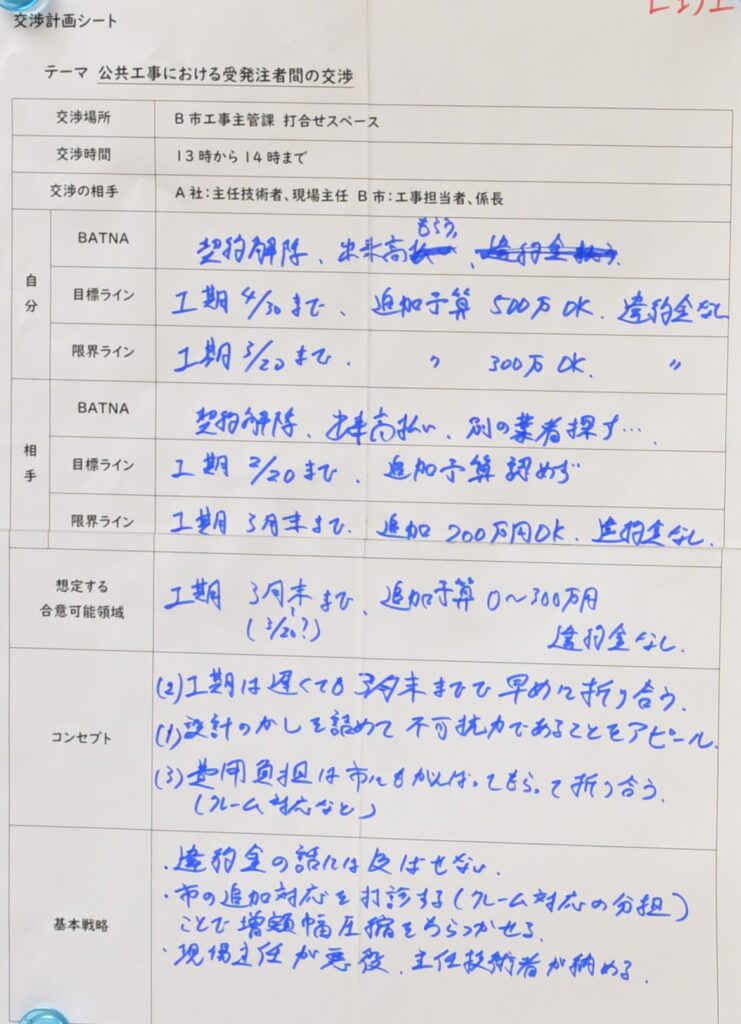 交渉計画シート
テーマ 公共工事における受発注者間の交渉
交渉場所 B市工事主管課 打合せスペース
交渉時間 13時から14時まで
交渉の相手 A社:主任技術者、現場主任 B市:工事担当者、係長
自分
BATNA 契約解除、出来高もらう、
目標ライン 工期 4/30まで、 追加予算 500万OK. 違約金なし
限界ライン 工期 3/20まで. 〃 300万OK. 〃
相手
BATNA 契約解除、出来高払い、別の業者探す….
目標ライン 工期 2/20まで、 追加予算認めず
限界ライン 工期 3月末まで. 追加 200万円OK. 違約金なし.
想定する合意可能領域 工期 3月末まで、追加予算0〜300万円
(3/20?) 違約金なし.
コンセプト
(2)工期は遅くても3月末までで早めに折り合う.
(1)設計のかしを認めて不可抗力であることをアピール.
(3)費用負担は市にもがんばってもらって折り合う.
(クレーム対応など)
基本戦略
・違約金の話には及ばせない.
・市の追加対応を打診する(クレーム対応の分担)
ことで増額幅圧縮をちらつかせる.
・現場主任が悪役、主任技術者が納める.